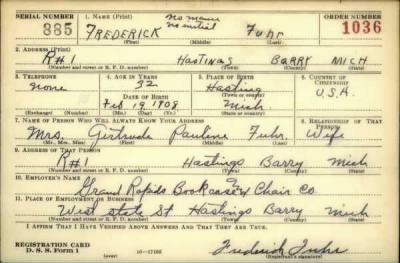 SERIAL NUMBER 1. NAME (Print) ORDER NUMBER
885 FREDERICK no name no initial Fuhr 1036
(First) (Middle) (Last)
2. ADDRESS (Print)
R#1 HASTINGS BARRY MICH
(Number and street or R. F. D. number) (Town) (County) (State)
3. TELEPHONE 4. AGE IN YEARS 5. PLACE OF BIRTH 6. COUNTRY OF CITIZENSHIP
none 32 Hasting U.S.A.
DATE OF BIRTH (Town or county)
Feb 19 1908 Mich.
(Exchange) (Number) (Mo.) (Day) (Yr.) (State or country)
7. NAME OF PERSON WHO WILL ALWAYS KNOW YOUR ADDRESS 8. RELATIONSHIP OF THAT PERSON
Mrs. Gertrude Pauline Fuhr. Wife
(Mr., Mrs., Miss) (First) (Middle) (Last)
9. ADDRESS OF THAT PERSON
R#1 Hastings Barry Mich
(Number and street or R. F. D. number) (Town) (County) (State)
10. EMPLOYER'S NAME
Grand Rapids Bookcase & Chair Co.
11. PLACE OF EMPLOYMENT OR BUSINESS
West State St Hastings Barry Mich
(Number and street or R. F. D. number) (Town) (County) (State)
I AFFIRM THAT I HAVE VERIFIED ABOVE ANSWERS AND THAT THEY ARE TRUE.
REGISTRATION CARD
D. S. S. Form 1 (over) Frederick Fuhr
(Registrant's signature)